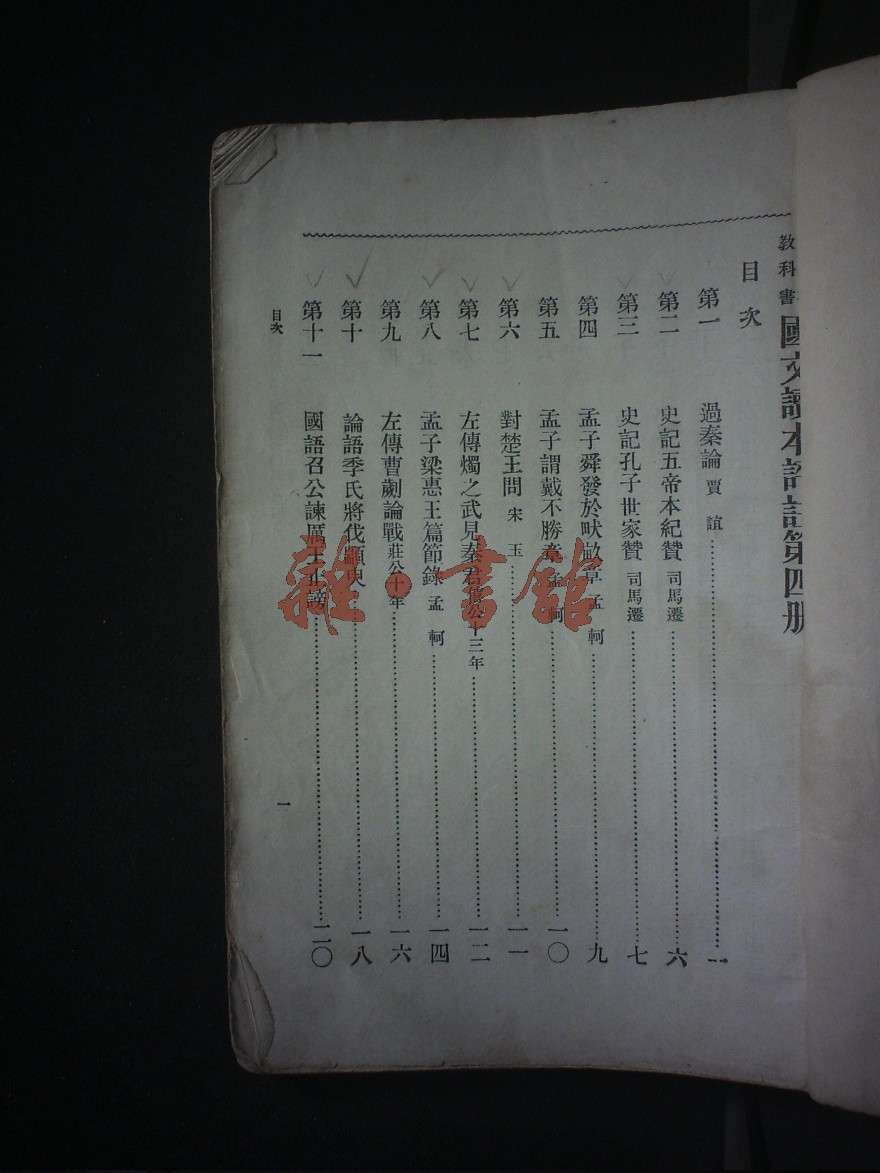 教科書 國文讀本評註第四册
目次
第一 過秦論 賈誼 一
第二 史記五帝本紀贊 司馬遷 六
第三 史記孔子世家贊 司馬遷 七
第四 孟子舜發於畎畝章 孟軻 九
第五 孟子謂戴不勝章 孟軻 一〇
第六 對楚王問 宋玉 一一
第七 左傳燭之武見秦君 僖公十三年 一二
第八 孟子梁惠王篇節錄 孟軻 一四
第九 左傳曹劌論戰 莊公十年 一六
第十 論語季氏將伐顓臾 一八
第十一 國語召公諫厲王止謗 二〇
目次
一
雜·書館